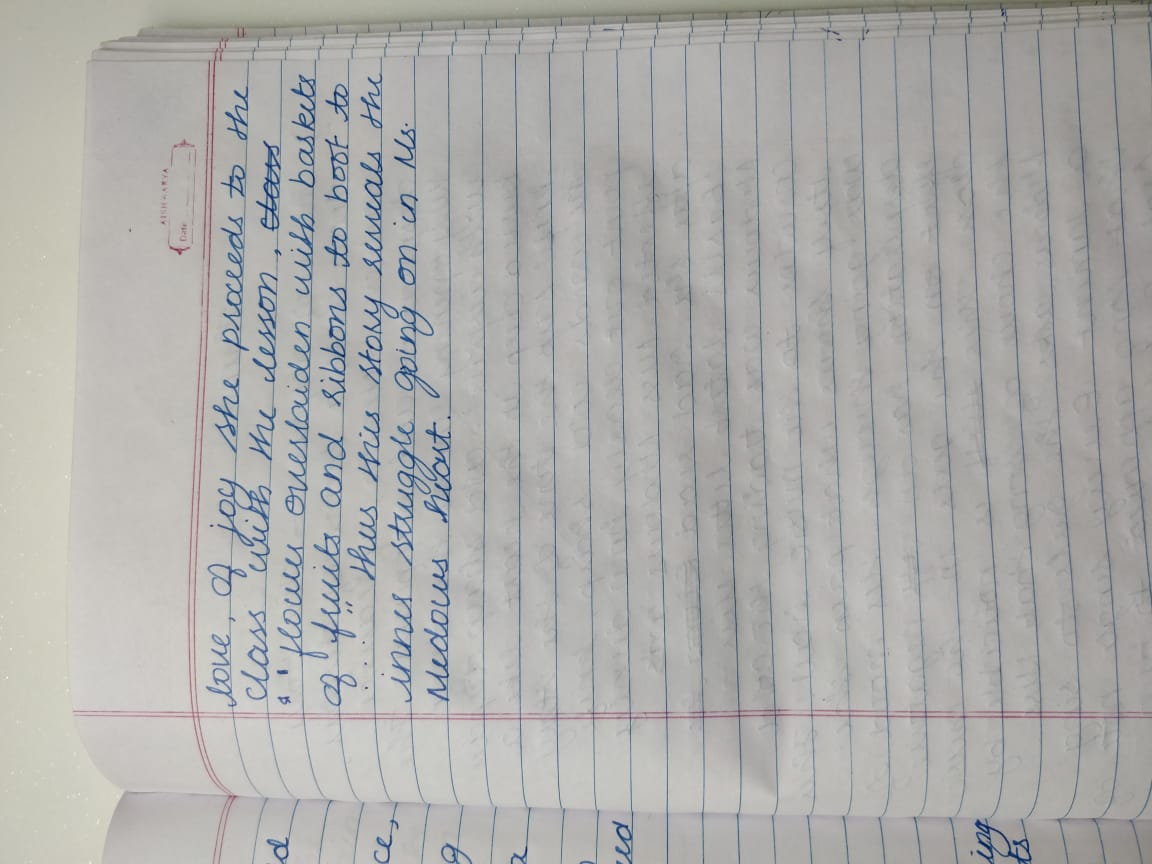 AISHWARYA
Date
love, of joy she proceeds to the
class with the lesson, class
" flowers overlaiden with baskets
of fruits and ribbons to boot to
... " thus this story reveals the
inner struggle going on in Ms.
Medows heart.
d
ce,
g
a
ed
ing
ts